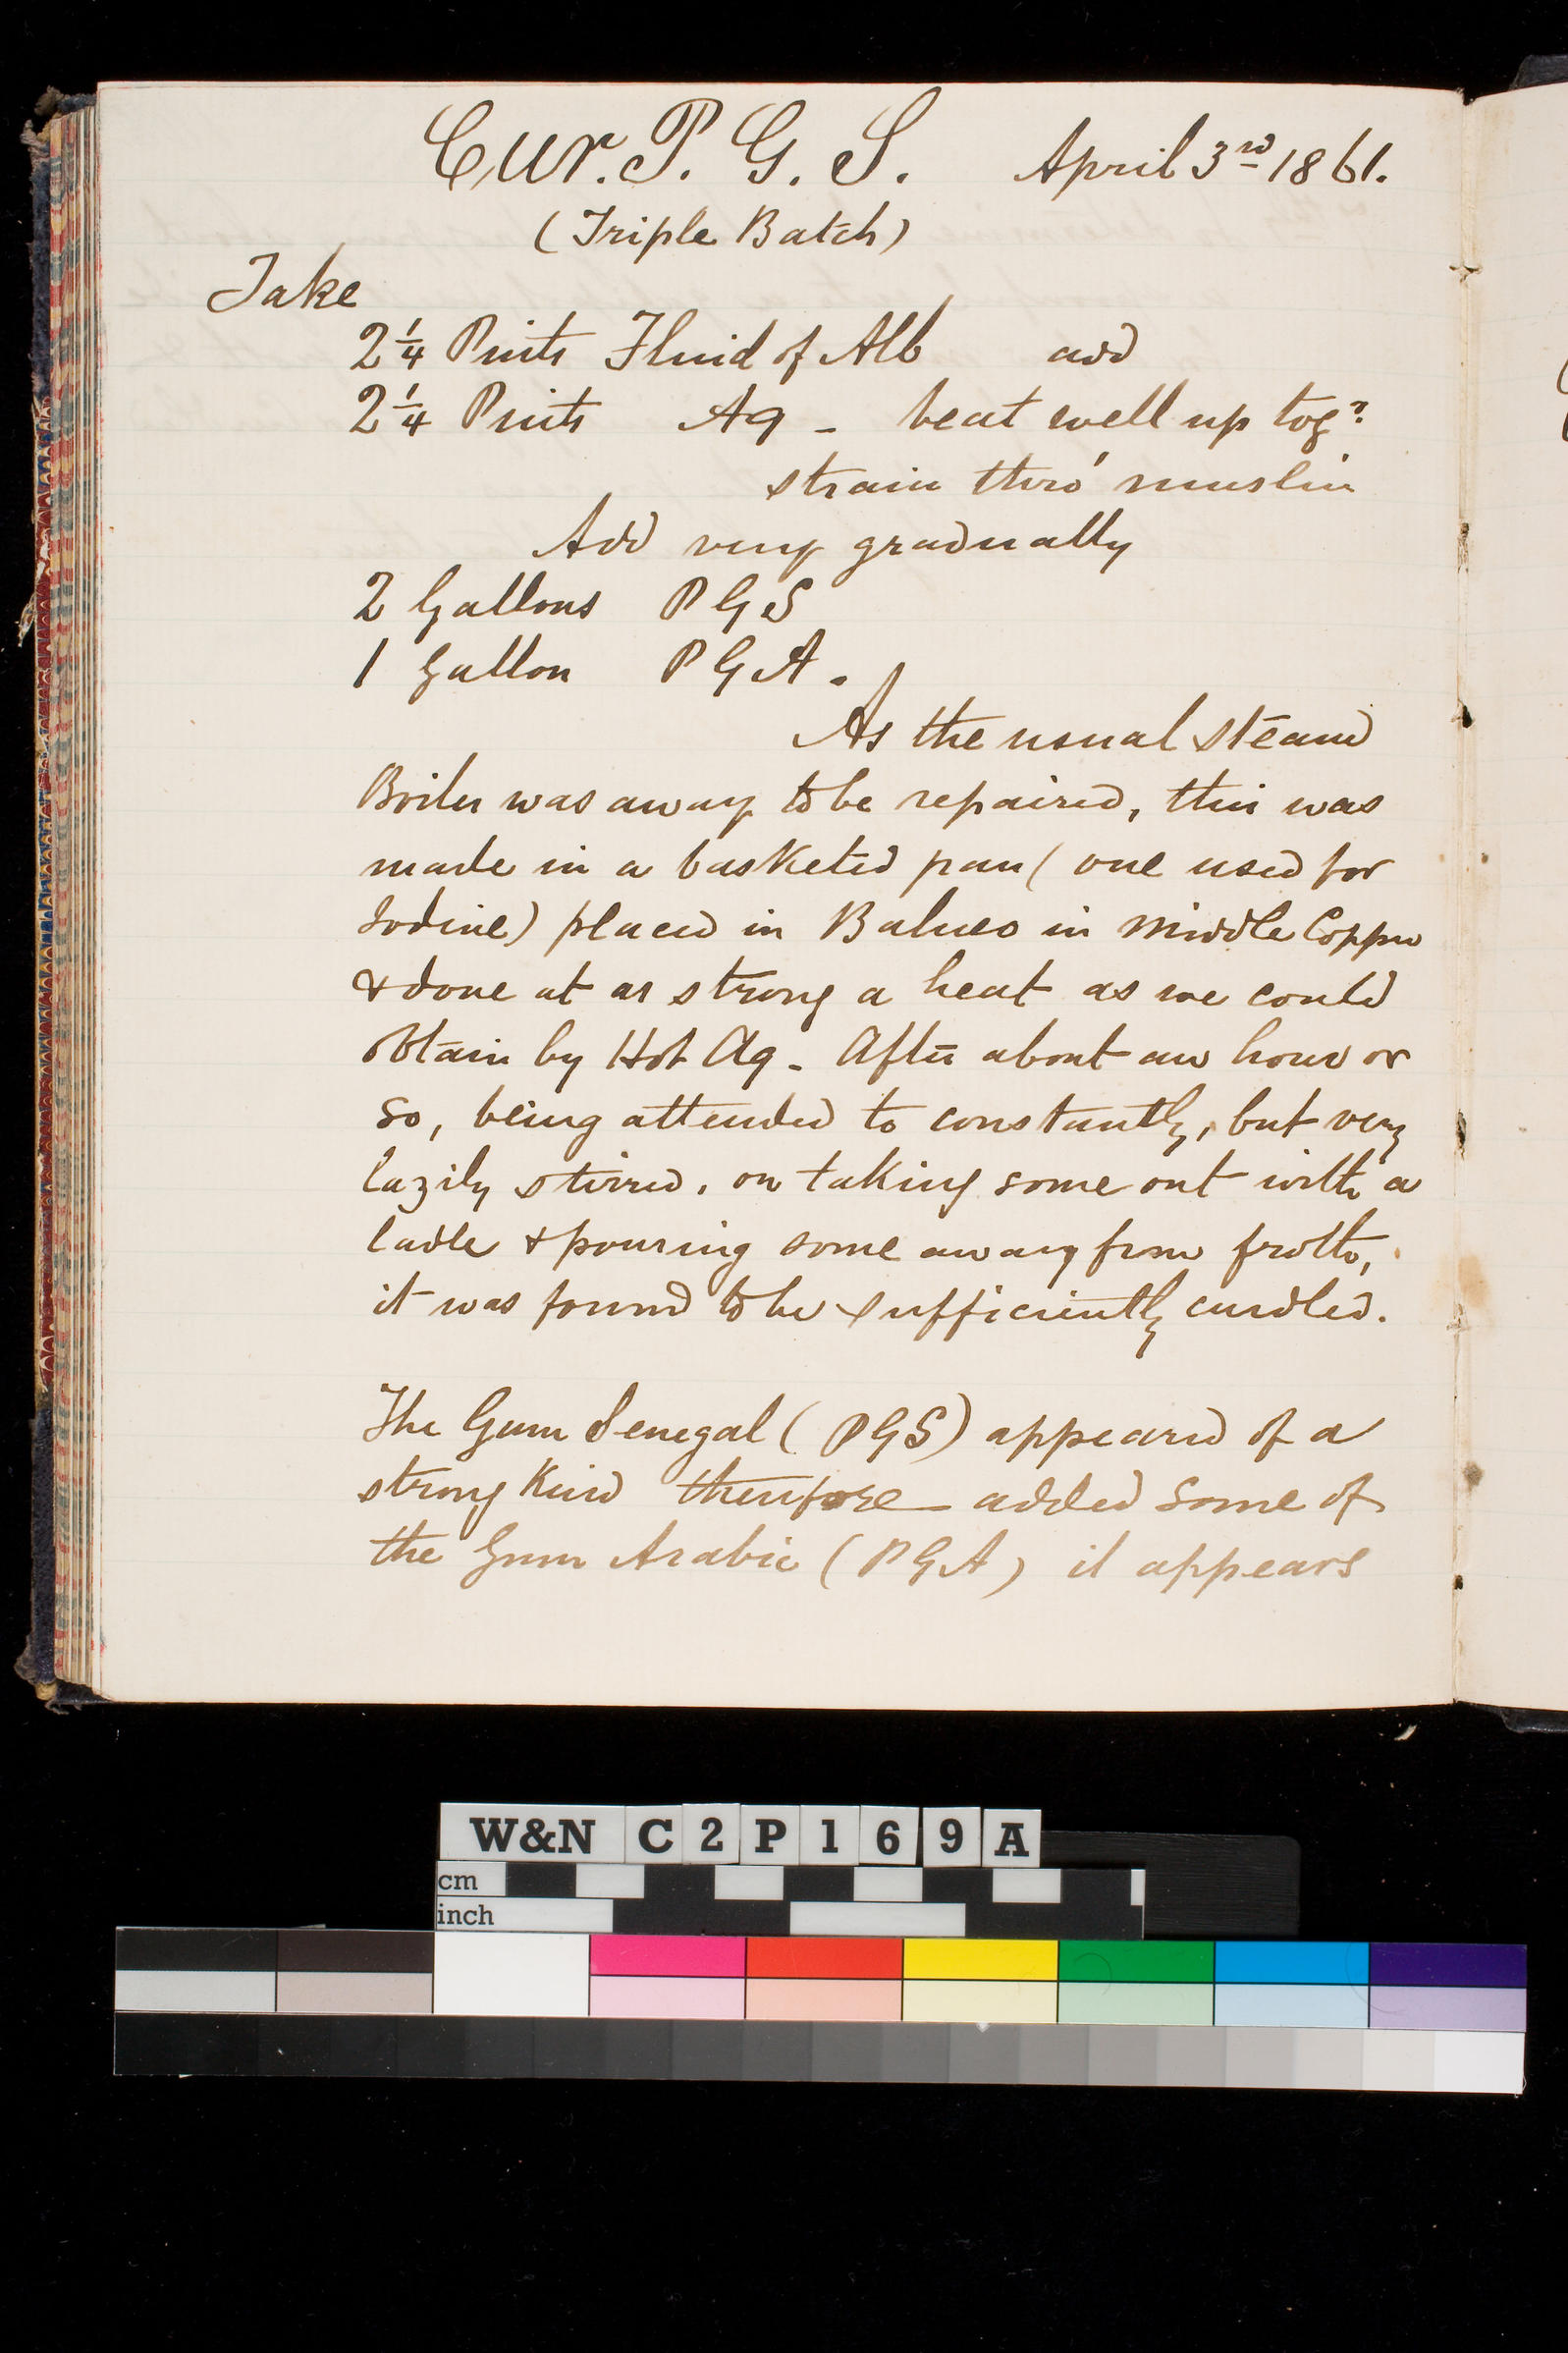 Cur. P. G. S. April 3rd 1861.
(Triple Batch)
Take
2 1/4 Pints Fluid of Alb add
2 1/4 Pints Aq - beat well up togr
strain thro' muslin
Add very gradually
2 Gallons P G S
1 Gallon P G A.
As the usual steam
Boiler was away to be repaired, this was
made in a basketed pan (one used for
Iodine) placed in Balneo in middle Copper
& done at as strong a heat as we could
obtain by Hot Aq - After about an hour or
so, being attended to constantly, but very
lazily stirred, on taking some out with a
ladle & pouring some away from froth,
it was found to be sufficiently curdled.
The Gum Senegal (PGS) appeared of a
strong kind therefore added some of
the Gum Arabic (PGA) it appears
W&N C2P169A
cm
inch